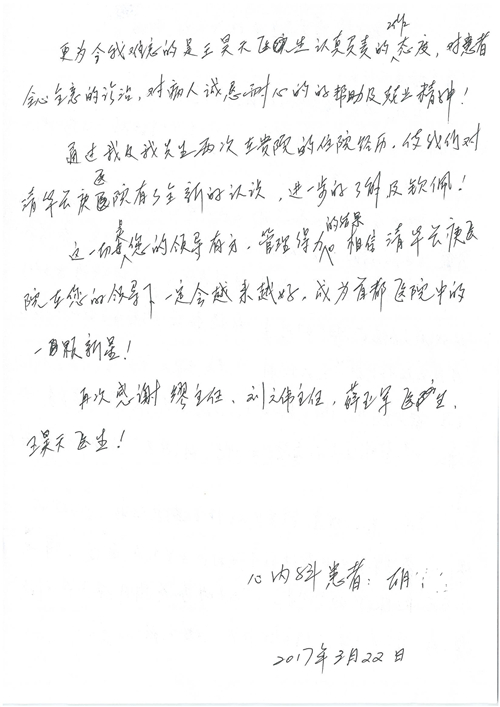 更为令我难忘的是王昊天医生认真负责的工作态度，对患者
全心全意的诊治，对病人诚恳耐心的的帮助及敬业精神！
通过我及我先生两次在贵院的住院经历，使我们对
清华长庚医院有了全新的认识，进一步的了解及钦佩！
这一切是您的领导有方，管理得力的结果。相信清华长庚医
院在您的领导下一定会越来越好，成为首都医院中的
一颗新星！
再次感谢缪主任、刘元伟主任，薛亚军医生，
王昊天医生！
心内科患者：胡
2017年3月22日